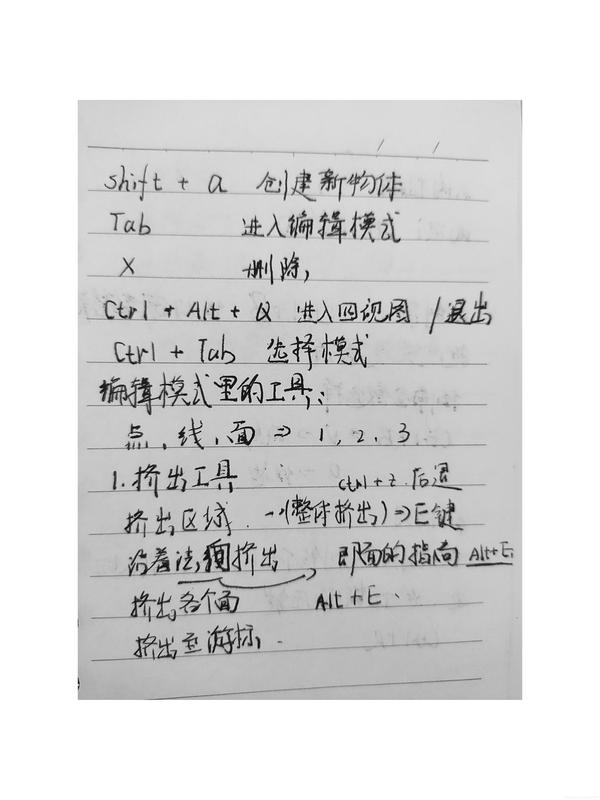 shift + a 创建新物体
Tab 进入编辑模式
X 删除,
Ctrl + Alt + Q 进入四视图 /退出
Ctrl + Tab 选择模式
编辑模式里的工具:
点,线,面 ⇒ 1,2.3
1.挤出工具 ctrl+z.后退
挤出区域. →(整体挤出)⇒E键
沿着法挤出, 即面的指向 Alt+E
挤出各个面 Alt+E.
挤出至游标.